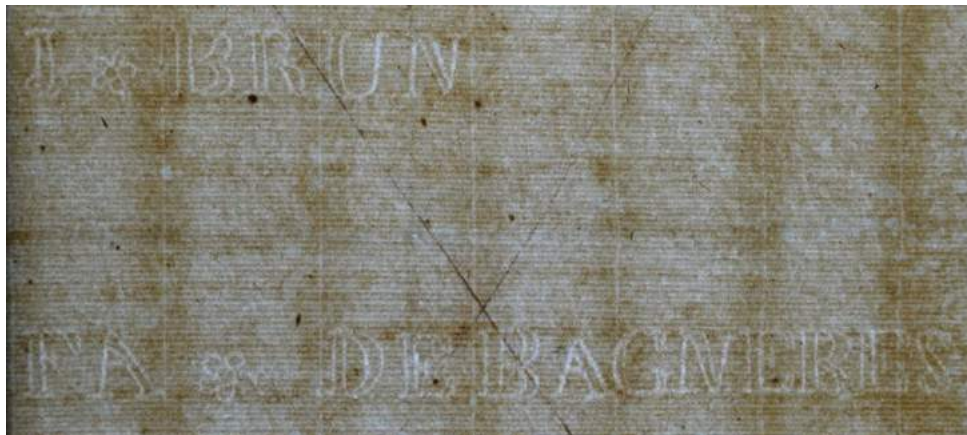 I ❀ BRUN
FA ❀ DE BAGNERES